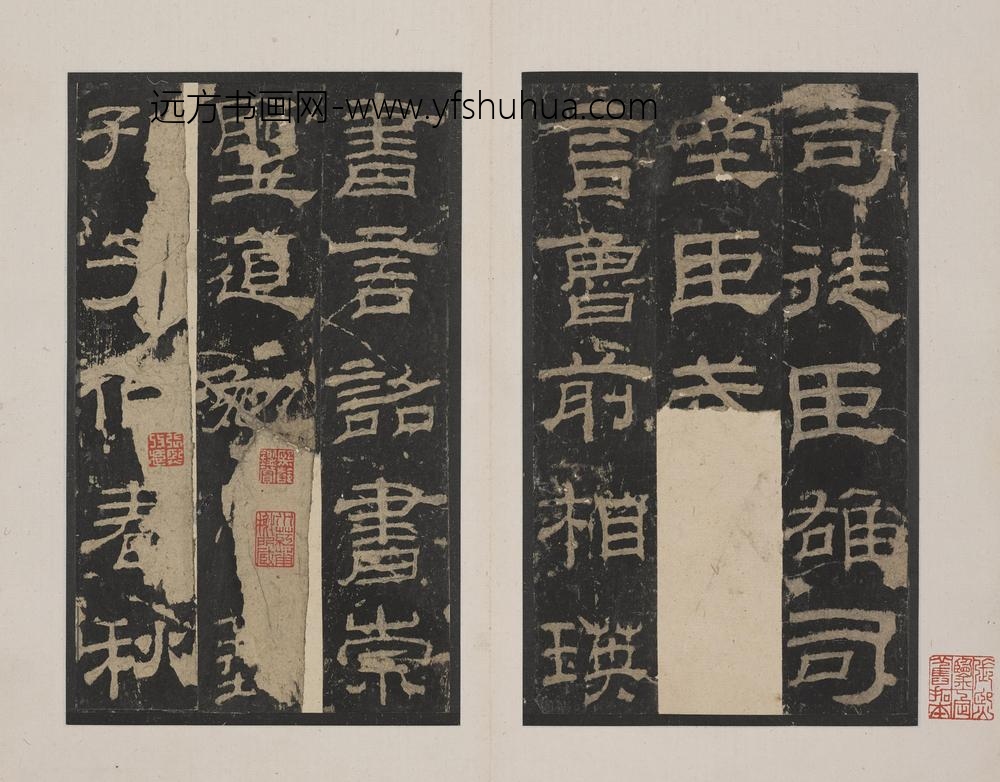 远方书画网-www.yfshuhua.com
司徒臣雄司
空臣戒
言魯前相瑛
書言詔書崇
聖道勉
孔子作春秋